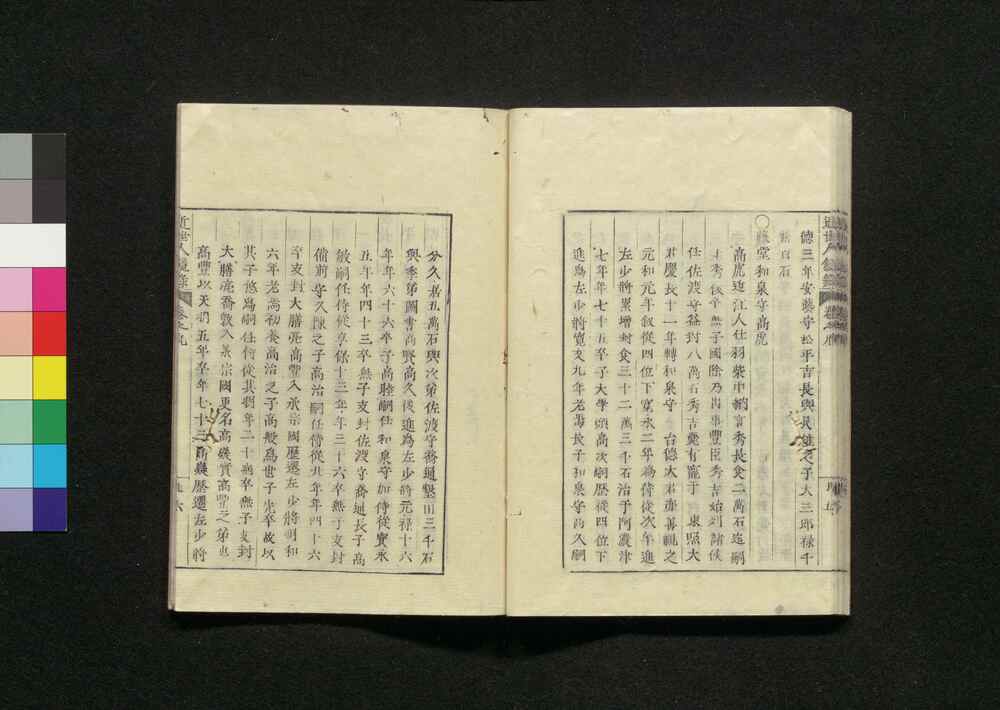 德三年安藝守松平吉長與兄進之子大三郎祿千
五百石
○藤堂和泉守高虎
高虎近江人仕羽柴中納言秀長食二萬石迨嗣
主秀俊卒無子國除乃出事豐臣秀吉始列諸侯
任佐渡守益封八萬石秀吉薨有寵于 東照大
君慶長十一年轉和泉守 台德大君亦善視之
元和元年敘從四位下寬永二年為侍從次年進
左少將累增封食三十二萬三千石治于阿濃津
七年卒年七十五卒子大學頭高次嗣歷從四位下
進為左少將寬文九年老長子和泉守高久嗣
分久居五萬石與次弟佐渡守高通墾田三千石
與季弟圖書高賢高久後進為左少將元祿十六
年年六十六卒子高睦嗣任和泉守加侍從寶永
五年年四十三卒無子支封佐渡守高通長子高
敏嗣任侍從享保十三年年三十六卒無子支封
備前守久陳之子高治嗣任侍從 年年四十六
卒支封大膳亮高豐入承宗國歷遷左少將明和
六年老高初養高治之子高般為世子先卒故以
其子 為嗣任侍從其 年二十 卒無子支封
大膳亮高敦入承宗國更名高 實高豐之弟也
高豐以天明五年卒年七十三高 歷遷左少將
近世人鏡錄
卷之九